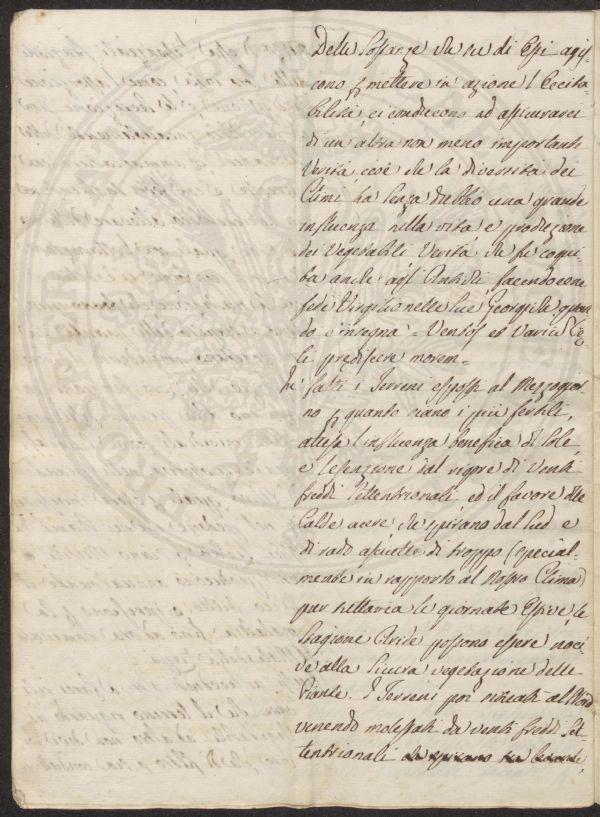 Delle Sostanze che su di Essi agis-
cono p mettere in azione l'Eccita-
bilità, ci conducono ad assicurarci
di un'altra non meno importante
Verità, cioè che la diversità dei
Climi ha senza dubbio una grande
influenza nella vita e produzione
dei Vegetabili Verità che fù cogni-
ta anche agl'Antichi facendocene
fede Virgilio nelle sue Georgiche quan-
do c'insegna - Ventos et Varium Cœ-
li prediscere morem -
In fatti i Terreni esposti al Mezzogior-
no p quanto siano i più fertili,
attesa l'influenza benefica di Sole,
e l'esenzione dal rigore di Venti
freddi Settentrionali ed il favore delle
Calde aeree che spirano dal Sud e
di rado asciutte di troppo (special-
mente in rapporto al Nostro Clima)
pur tuttavia le giornate Estive, le
Stagione Aride possono essere noci-
ve alla sicura vegetazione delle
Piante. I Terreni poi situati al Nord
venendo molestati da venti freddi Set-
tentrionali